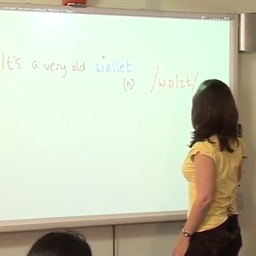 It's a very old wallet
(n) /wɒlɪt/